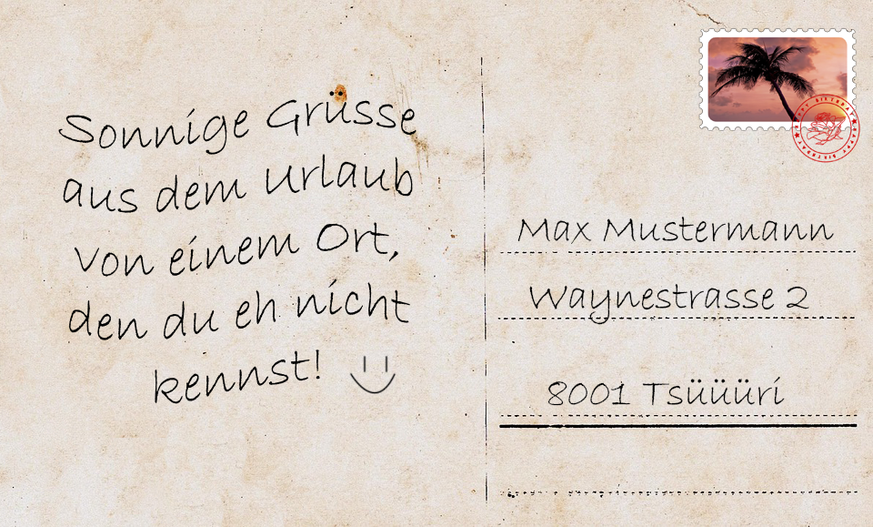 Sonnige Grüsse
aus dem Urlaub
von einem Ort,
den du eh nicht
kennst!
Max Mustermann
Waynestrasse 2
8001 Tsüüüri
HAPPY BIRTHDAY HAPPY BIRTHDAY